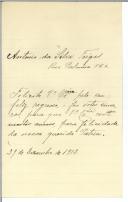 Antonio da Silva
Rua
Felicito V. Exª pelo seu
feliz regresso, e faz votos since-
ros para que V. Exª
muitos annos para felicidade
da nossa querida Patria.
29 Dezembro de 1913